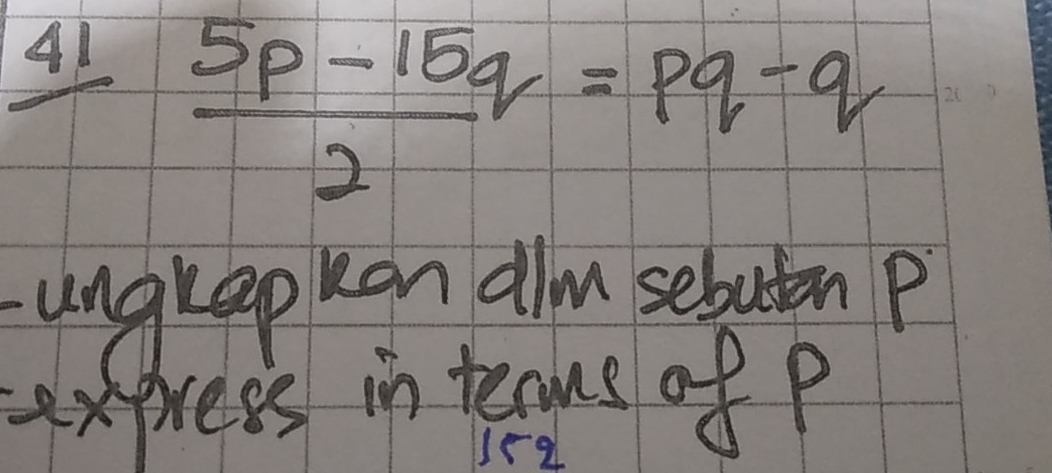 41 5p - 15q = pq - q
2
- ungkapkan dlm sebutan p
- express in terms of p
152